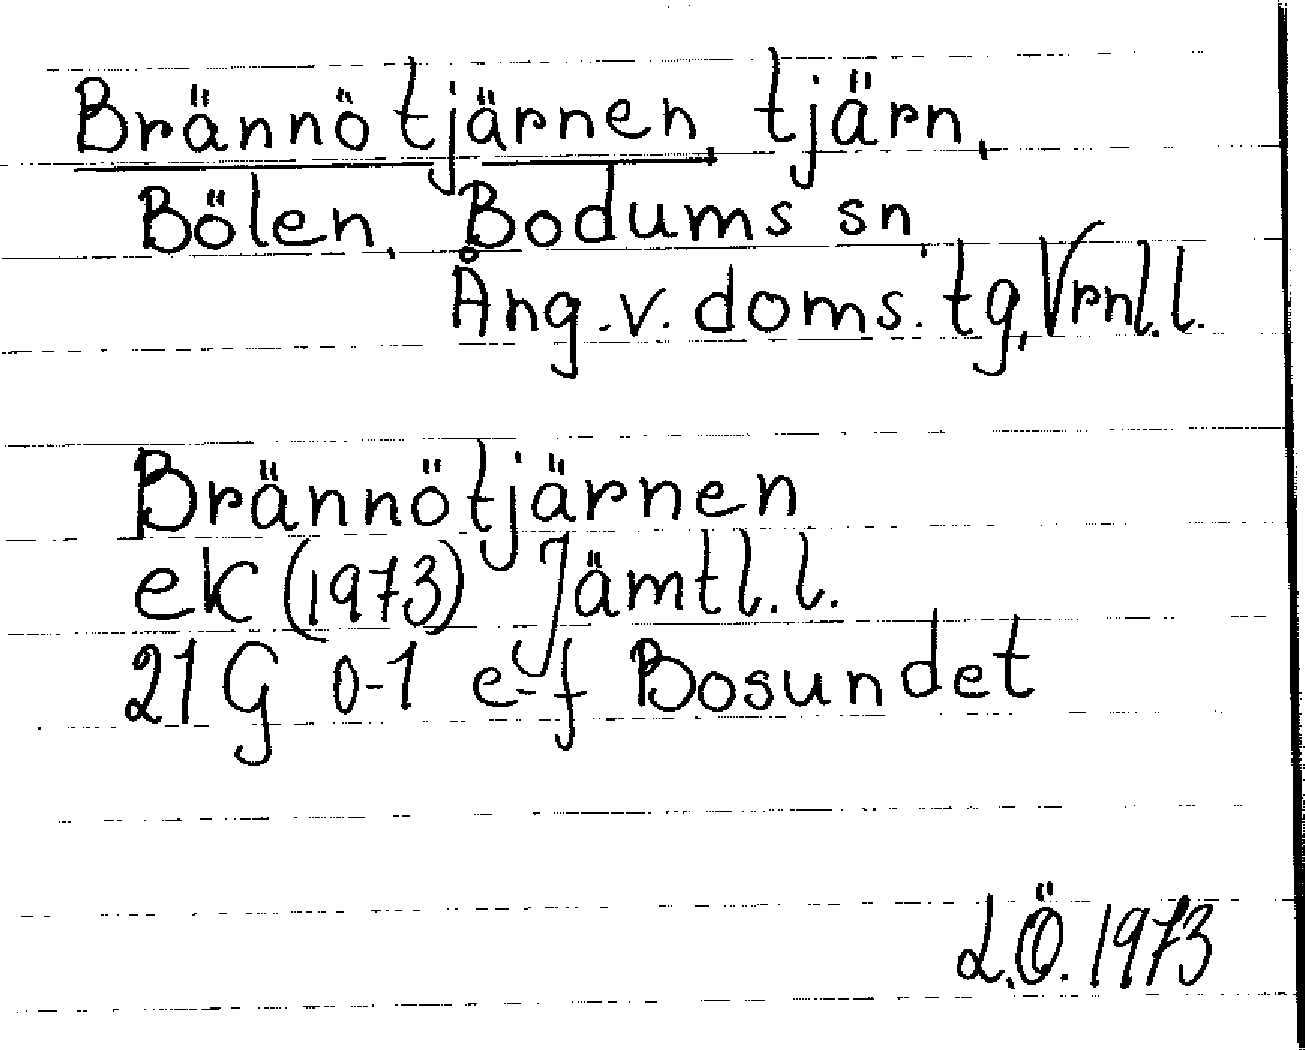 Brännötjärnen, tjärn,
Bölen, Bodums sn,
Ång.v. doms. tg, Vrnl.l.
Brännötjärnen
ek (1973) Jämtl.l.
21G 0-1 e-f Bosundet
L.Ö. 1973